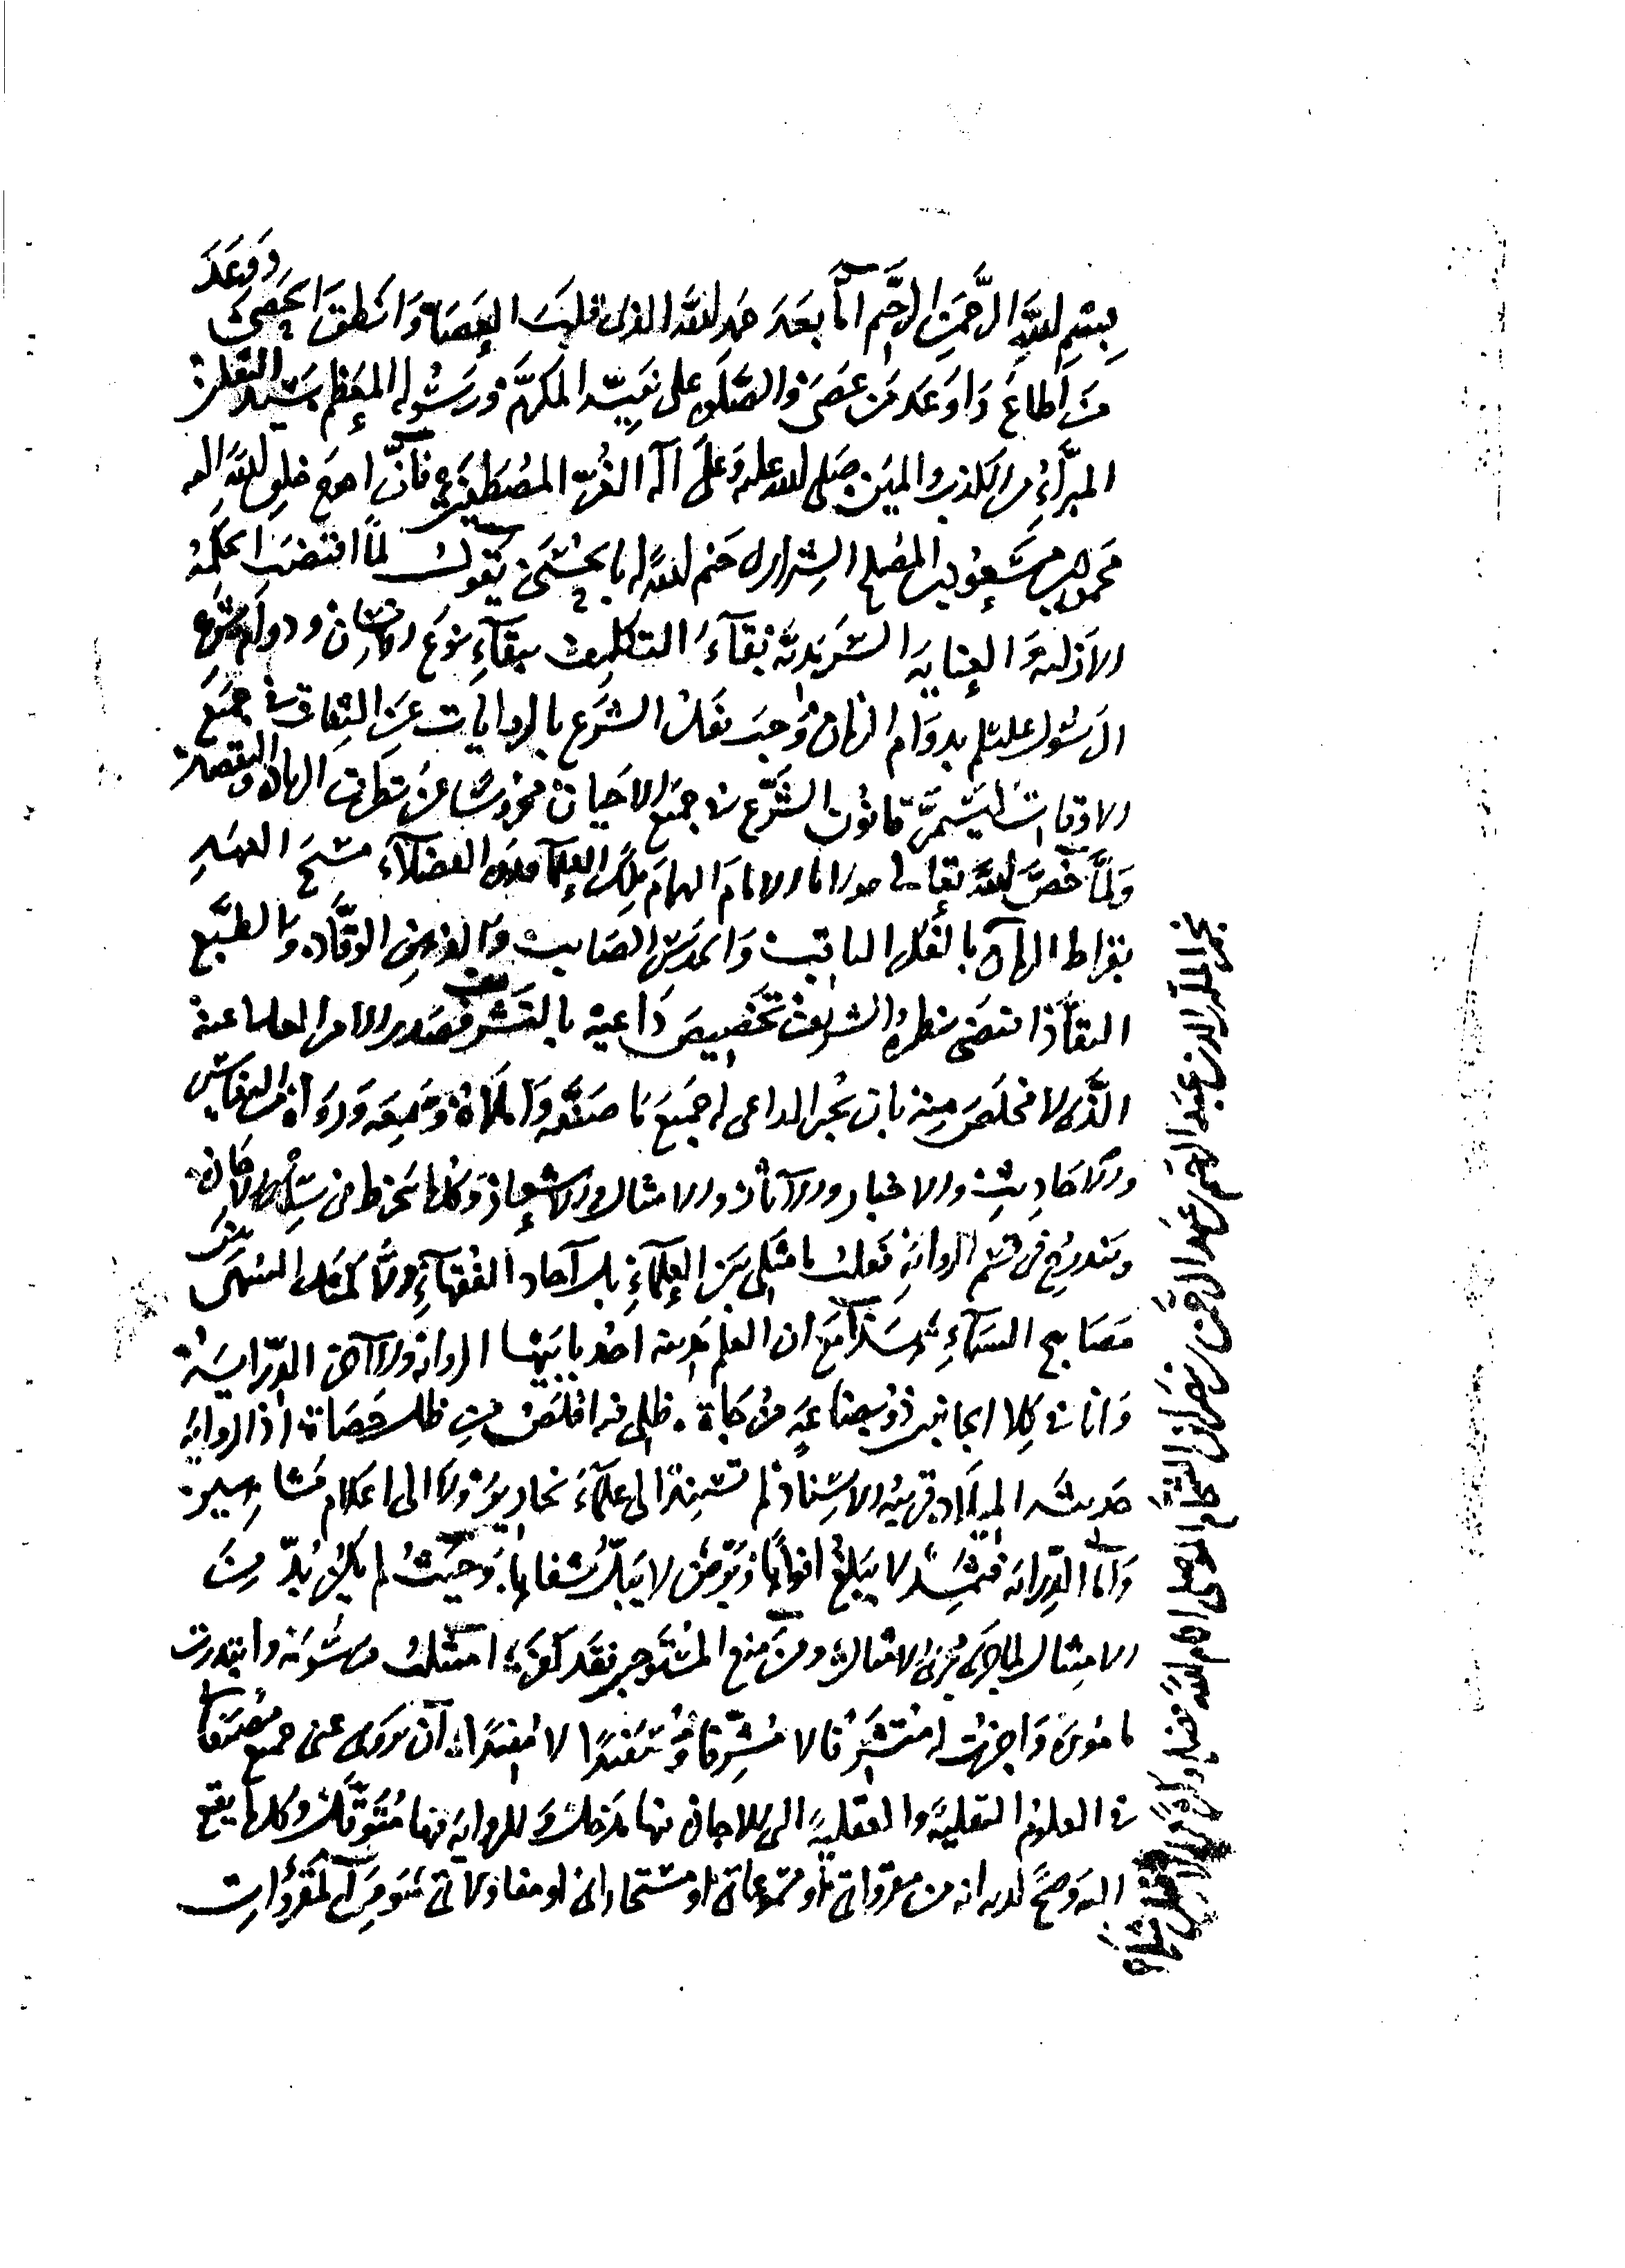 بسم الله الرحمن الرحيم اما بعد حمد الله الذى قلب العصا وانطق الحصى ووعد
من اطاع واوعد من عصى والصلوة على نبيه المكرم ورسوله المعظم سيد الثقلين
المبرأ من الكذب والمين صلى الله عليه وعلى آله الغر المصطفين فان احوج خلق الله اليه
محمود بن مسعود بن المصلح الشيرازى ختم الله له بالحسنى يقول لما اقتضت الحكمة
الازلية والعناية السرمدية بقاء التكليف ببقاء نوع الانسان ودوام شرع
الرسول عليلم بدوام الزمان وجب نقل الشرع بالروايات عن الثقات فى جميع
الاوقات ليستمر قانون الشرع فى جميع الاحيان محروسا عن تطرق الزيادة والنقصان
ولما خص الله تعالى مولانا الامام الهمام ملك العلماء قدوة الفضلاء
بقراط الزمان بالفكر الثاقب والحدس الصايب والذهن الوقاد والطبع
النقاد اقتضى نظره الشريف تخصيص داعيه بالتشريف فصدر الامر العلى منه
الذى لا مخلص منه بان يجيز الداعى له جميع ما صنفه واملاه وسمعه ورواه من التفاسير
والاحاديث والاخبار والآثار والامثال والاشعار وكلما ينخرط فى سلك الاجازة
ويندرج فى قسم الرواية فعلت ما مثلى بين العلماء بل آحاد الفقهاء الا كمثل السهى بين
مصابيح السماء هذا مع ان العلم مدينة احد بابيها الرواية والآخر الدراية
وانا فى كلا البابين ذو بضاعة مزجاة ظلى فيه اقلص من ظل حصاة اذ الرواية
حديثة الميلاد قريبة الاسناد لم تستند الى علماء نحارير ولا الى اعلام مشاهير
واما الدراية فثمد لا يبلغ افواها وبرض لا يبل شفاها وحيث لم يكن بد من
الامتثال لما جرى مجرى الامثال ومن منع المستوجبين فقد امتثلت مرسومه وابتدرت
مامورة واجزت له متشرفا لا مشرفا ومستفيدا لا مفيدا ان يروى عنى جميع مصنفاتى
فى العلوم النقلية والعقلية التى للاجازة فيها مدخل وللرواية فيها متوقل وكلما يقع
اليه وصح لديه انه من مقرواتى او مسموعاتى او مستجازاتى او مناولاتى سوى المقروءات
نجم الملة والدين عبد الرحيم بن عبد الرحمن بن نصر الشحام الموصلى ادام الله فضايله